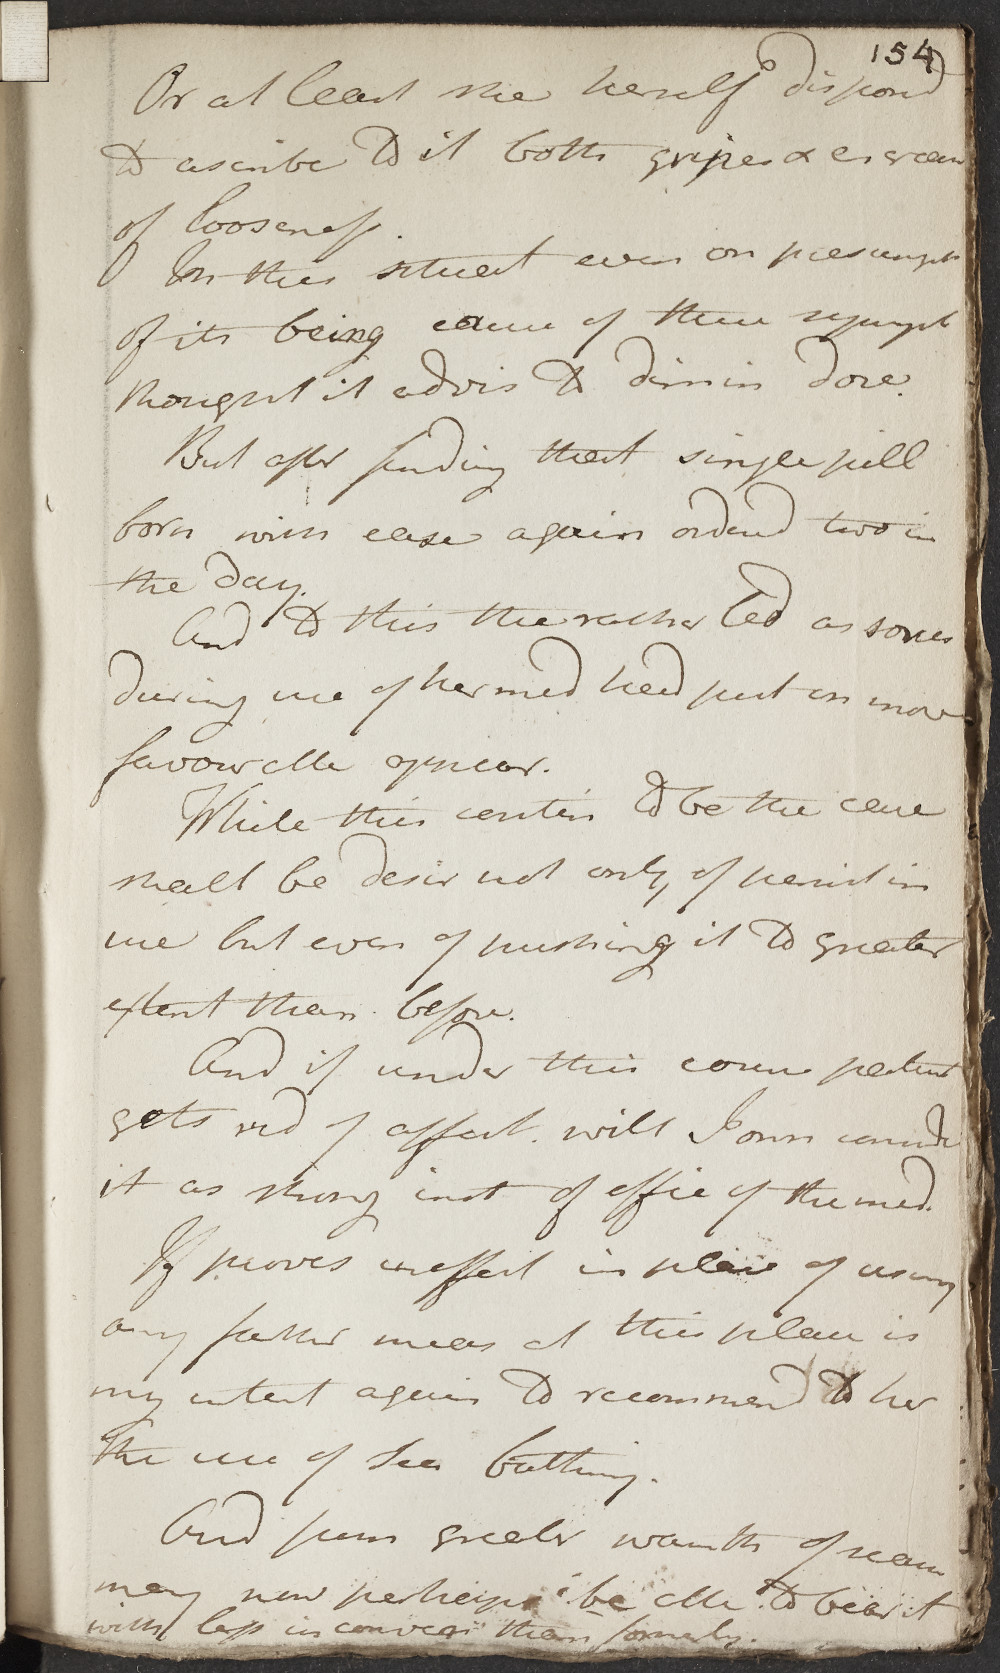 154
Or at least she herself disposd
to ascribe to it both gripes & encrease
of looseness.
In this situat even on presumpt
of its being cause of these sympt
thought it advis to dimin dose.
But after finding that single pill
born with ease again orderd two in
the day.
And to this the rather led as sores
during use of her med had put on more
favourable appear.
While this contin to be the case
shall be desir not only of persist in
use but even of pushing it to greater
extent than before.
And if under this course patient
gets rid of affect. will I own consider
it as strong inst of effic of the med.
If proves uneffect in place of using
any farther meas at this place is
my intent again to recommend to her
the use of Sea bathing.
And from greater warmth of season
may now perhaps be able to bear it
with less inconven than formerly.